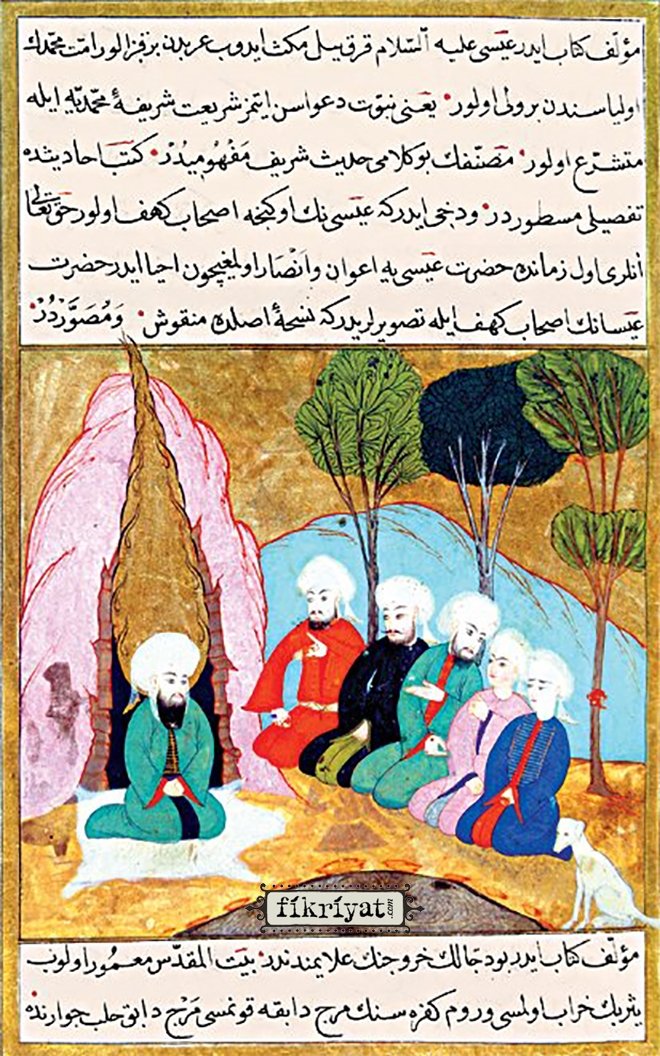 مؤلف كتاب ايدر عيسى عليه السلام قرق ييل مكث ايدوب عربدن بر قز الور امت محمدك
اولياسندن بر ولى اولور يعنى نبوت دعواسن ايتمز شريعت شريفهٔ محمديه ايله
متشرع اولور مصنفك بو كلامى حديث شريف مفهوميدر كتب احاديثده
تفصيلى مسطوردر ودخى ايدر كه عيسى نك اوكنجه اصحاب كهف اولور حق تعالى
انلرى اول زمانده حضرت عيسى يه اعوان وانصار اولمغيچون احيا ايدر حضرت
عيسانك اصحاب كهف ايله تصويرلريدر كه نسخهٔ اصلده منقوش ومصوردر
fikriyat.com
مؤلف كتاب ايدر بو دجالك خروجنك علايمندندر بيت المقدس معمور اولوب
يثربك خراب اولمسى وروم كفره سنك مرج دابقه قونمسى مرج دابق حلب جوارنده